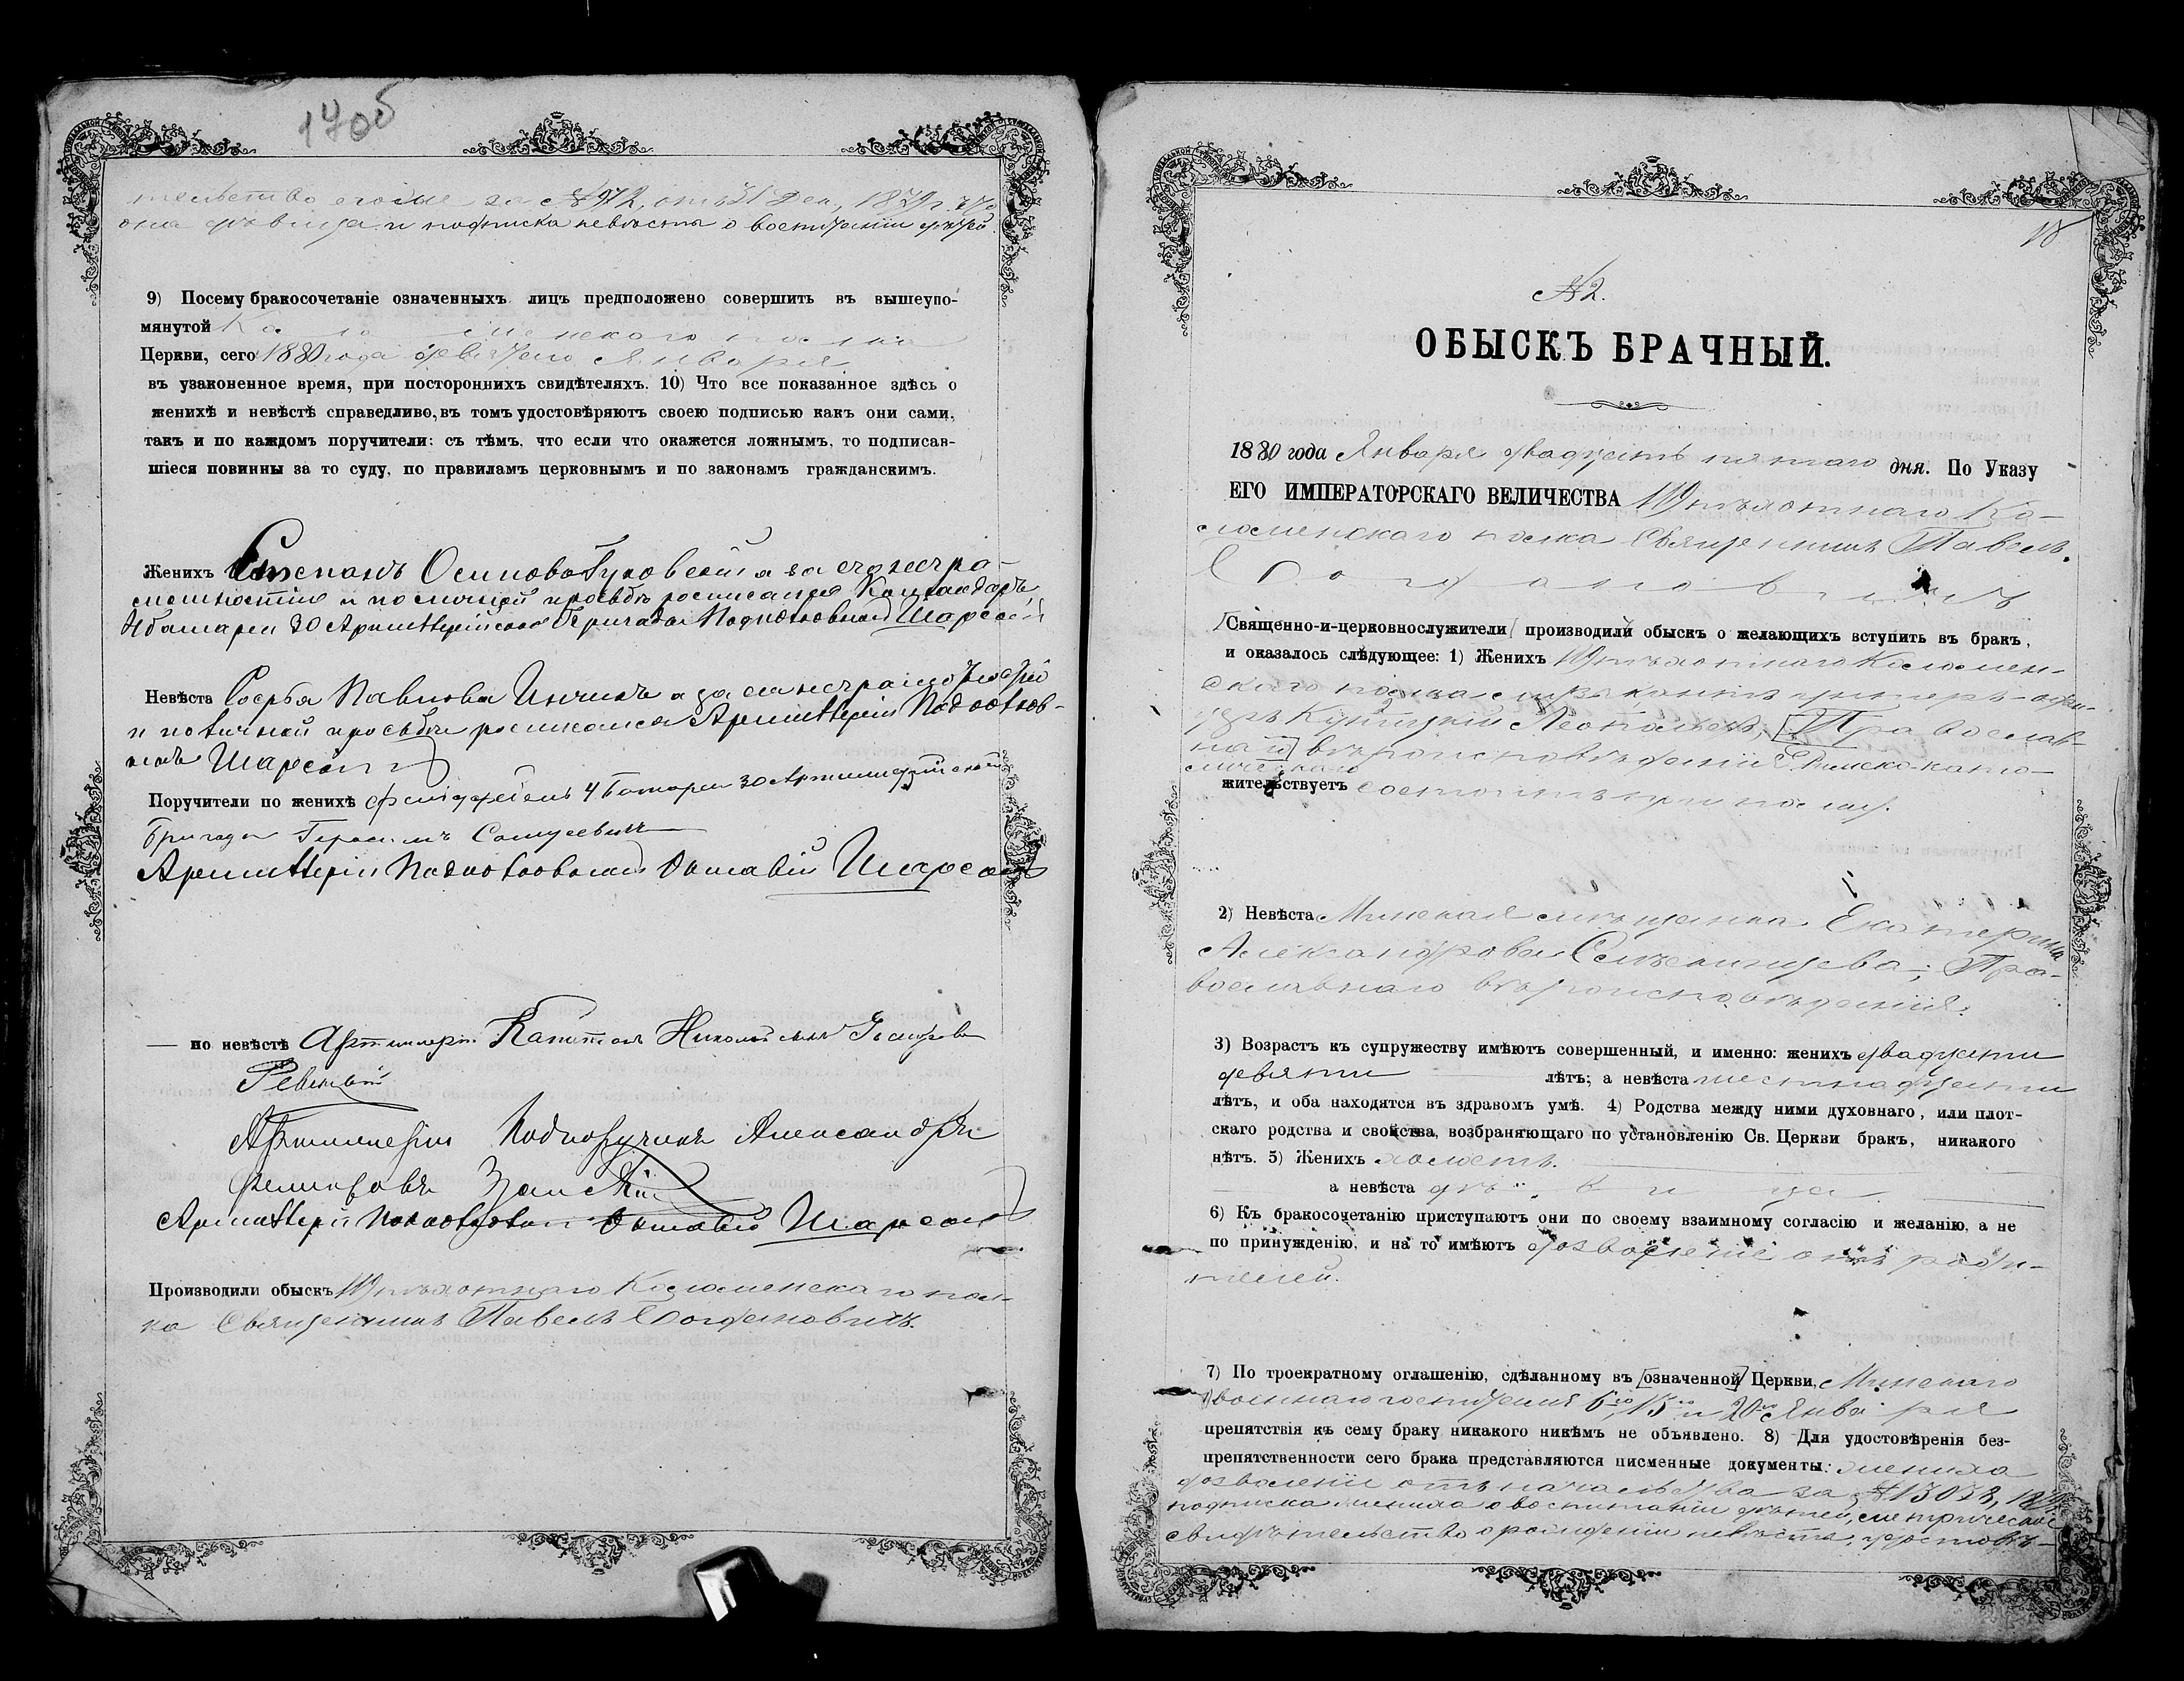 17об
тельство о томъ за № 972, отъ 31 Дек. 1879 г. что
она дѣвица и подписка невѣсты о воспитаніи дѣтей.
9) Посему бракосочетаніе означенныхъ лицъ предположено совершить въ вышеупо-
мянутой Коломенскаго полка
Церкви, сего 1880 года девятаго Января
въ узаконенное время, при постороннихъ свидѣтеляхъ. 10) Что все показанное здѣсь о
женихѣ и невѣстѣ справедливо, въ томъ удостовѣряютъ своею подписью какъ они сами,
такъ и по каждомъ поручители: съ тѣмъ, что если что окажется ложнымъ, то подписав-
шіеся повинны за то суду, по правиламъ церковнымъ и по законамъ гражданскимъ.
Женихъ Степанъ Осиповъ а за его неграмо-
мотностію и по личной просьбѣ росписался Командиръ
4 батареи 30 Артиллерійской Бригады Подполковникъ
Невѣста Софья Павлова а за
и по личной просьбѣ росписался Артиллеріи Подполков-
никъ
Поручители по женихѣ фельдфебель 4 Батареи 30 Артиллерійской
Бригады Герасимъ
Артиллеріи Подполковникъ Октавій
— по невѣстѣ Артиллеріи Капитанъ Николай
Артиллеріи Подпоручикъ Александръ
Артиллеріи Подполковникъ Октавій
Производили обыскъ 119 пѣхотнаго Коломенскаго пол-
ка Священникъ Павелъ Богдановичъ.
18
№ 2.
ОБЫСКЪ БРАЧНЫЙ.
1880 года Января двадцать пятаго дня. По Указу
ЕГО ИМПЕРАТОРСКАГО ВЕЛИЧЕСТВА 119 пѣхотнаго Ко-
ломенскаго полка Священникъ Павелъ
Богдановичъ
Священно-и-церковнослужители производили обыскъ о желающихъ вступить въ бракъ,
и оказалось слѣдующее: 1) Женихъ 119 пѣхотнаго Коломен-
скаго полка музыкантъ унтеръ-офи-
церъ Леопольдъ; Православ-
наго вѣроисповѣданія Римско-като-
лическаго
жительствуетъ состоитъ при полку.
2) Невѣста Минская мѣщанка Екатерина
Александрова; Пра-
вославнаго вѣроисповѣданія.
3) Возрастъ къ супружеству имѣютъ совершенный, и именно: женихъ двадцати
девяти лѣтъ; а невѣста шестнадцати
лѣтъ, и оба находятся въ здравомъ умѣ. 4) Родства между ними духовнаго, или плот-
скаго родства и свойства, возбраняющаго по установленію Св. Церкви бракъ, никакого
нѣтъ. 5) Женихъ холостъ.
а невѣста дѣвица
6) Къ бракосочетанію приступаютъ они по своему взаимному согласію и желанію, а не
по принужденію, и на то имѣютъ дозволеніе отъ роди-
телей.
7) По троекратному оглашенію, сдѣланному въ означенной Церкви, Минскаго
военнаго госпиталя 6го, 13го и 20го Января
препятствія къ сему браку никакого никѣмъ не объявлено. 8) Для удостовѣренія без-
препятственности сего брака представляются писменные документы: жениха
дозволеніе отъ начальства за №
подписка жениха о воспитаніи дѣтей, метрическое
свидѣтельство о рожденіи невѣсты,